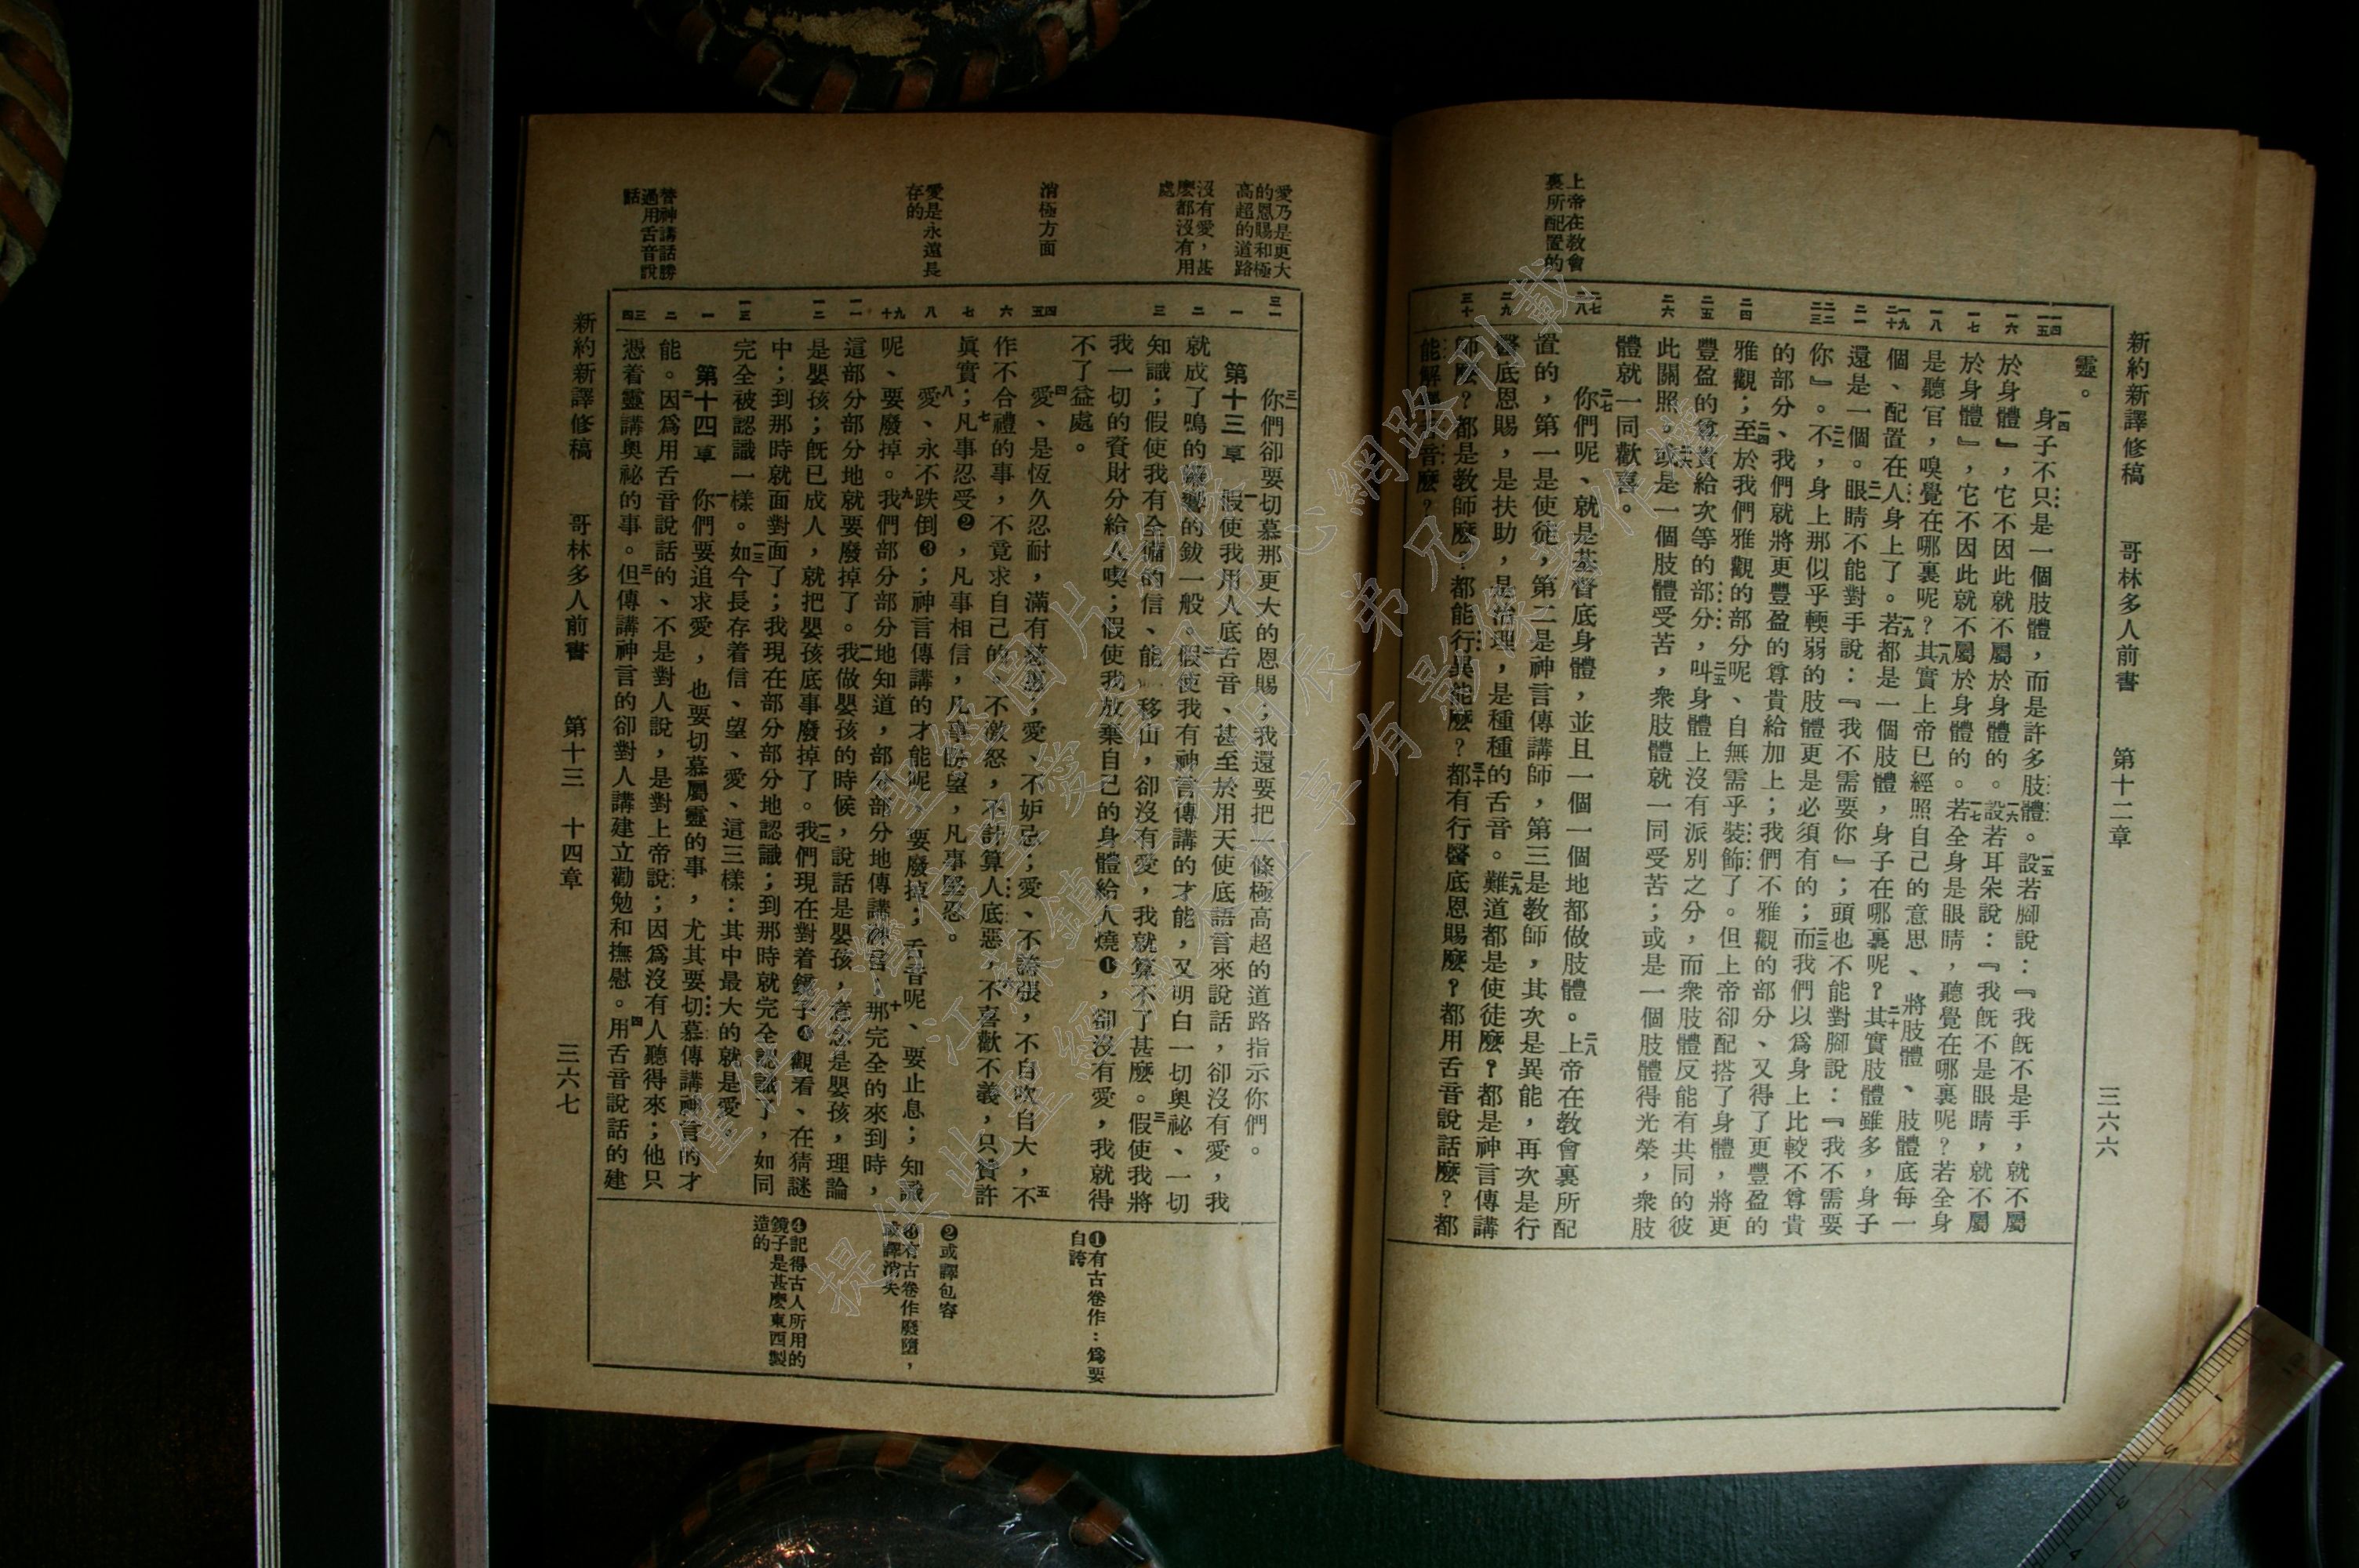 新約新譯修稿　哥林多人前書　第十二章　三六六
上帝在教會
裏所配置的
一四
一五
一六
一七
一八
一九
二十
二一
二二
二三
二四
二五
二六
二七
二八
二九
三十
靈。
一四身子不只是一個肢體，而是許多肢體。一五設若腳說：『我旣不是手，就不屬
於身體』，它不因此就不屬於身體的。一六設若耳朵說：『我旣不是眼睛，就不屬
於身體』，它不因此就不屬於身體的。一七若全身是眼睛，聽覺在哪裏呢？若全身
是聽官，嗅覺在哪裏呢？一八其實上帝已經照自己的意思、將肢體、肢體底每一
個、配置在人身上了。一九若都是一個肢體，身子在哪裏呢？二十其實肢體雖多，身子
還是一個。二一眼睛不能對手說：『我不需要你』；頭也不能對腳說：『我不需要
你』。二二不，身上那似乎輭弱的肢體更是必須有的；二三而我們以爲身上比較不尊貴
的部分、我們就將更豐盈的尊貴給加上；我們不雅觀的部分、又得了更豐盈的
雅觀；二四至於我們雅觀的部分呢、自無需乎裝飾了。但上帝卻配搭了身體，將更
豐盈的尊貴給次等的部分，二五叫身體上沒有派別之分，而衆肢體反能有共同的彼
此關照。二六或是一個肢體受苦，衆肢體就一同受苦；或是一個肢體得光榮，衆肢
體就一同歡喜。
二七你們呢、就是基督底身體，並且一個一個地都做肢體。二八上帝在教會裏所配
置的，第一是使徒，第二是神言傳講師，第三是教師，其次是異能，再次是行
醫底恩賜，是扶助，是治理，是種種的舌音。二九難道都是使徒麽？都是神言傳講
師麽？都是教師麽？都能行異能麽？三十都有行醫底恩賜麽？都用舌音說話麽？都
能解釋舌音麽？
愛乃是更大
的恩賜和極
高超的道路
沒有愛，甚
麽都沒有用
處
消極方面
愛是永遠長
存的
替神講話勝
過用舌音說
話
三一
一
二
三
四
五
六
七
八
九
十
一一
一二
一三
一
二
三
四
三一你們卻要切慕那更大的恩賜；我還要把一條極高超的道路指示你們。
第十三章　一假使我用人底舌音、甚至於用天使底語言來說話，卻沒有愛，我
就成了鳴的鑼響的鈸一般。二假使我有神言傳講的才能，又明白一切奧祕、一切
知識；假使我有全備的信、能移山，卻沒有愛，我就算不了甚麽。三假使我將
我一切的資財分給人喫；假使我放棄自己的身體給人燒❶，卻沒有愛，我就得
不了益處。
四愛、是恆久忍耐，滿有慈惠；愛、不妒忌；愛、不誇張，不自吹自大，五不
作不合禮的事，不竟求自己的，不激怒，不計算人底惡，六不喜歡不義，只贊許
眞實；七凡事忍受❷，凡事相信，凡事盼望，凡事堅忍。
八愛、永不跌倒❸；神言傳講的才能呢、要廢掉；舌音呢、要止息；知識
呢、要廢掉。九我們部分部分地知道，部分部分地傳講神言；十那完全的來到時，
這部分部分地就要廢掉了。一一我做嬰孩的時候，說話是嬰孩，意念是嬰孩，理論
是嬰孩；旣已成人，就把嬰孩底事廢掉了。一二我們現在對着鏡子❹觀看、在猜謎
中；到那時就面對面了；我現在部分部分地認識；到那時就完全認識了，如同
完全被認識一樣。一三如今長存着信、望、愛、這三樣：其中最大的就是愛。
第十四章　一你們要追求愛，也要切慕屬靈的事，尤其要切慕傳講神言的才
能。二因爲用舌音說話的、不是對人說，是對上帝說；因爲沒有人聽得來；他只
憑着靈講奧祕的事。三但傳講神言的卻對人講建立勸勉和撫慰。四用舌音說話的建
❶有古卷作：爲要
自誇
❷或譯包容
❸有古卷作廢墮，
或譯消失
❹記得古人所用的
鏡子是甚麽東西製
造的
新約新譯修稿　哥林多人前書　第十三　十四章　三六七